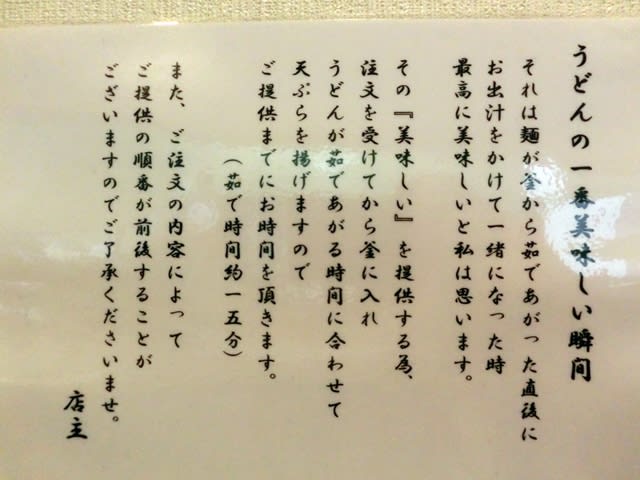 うどんの一番美味しい瞬间
それは麺が釜から茹であがった直後に
お出汁をかけて一緒になった時
最高に美味しいと私は思います。
その『美味しい』を提供する為、
注文を受けてから釜に入れ
うどんが茹であがる時间に合わせて
天ぷらを揚げますので
ご提供までにお時间を頂きます。
（茹で時间約一五分）
また、ご注文の内容によって
ご提供の順番が前後することが
ございますのでご了承くださいませ。
店主